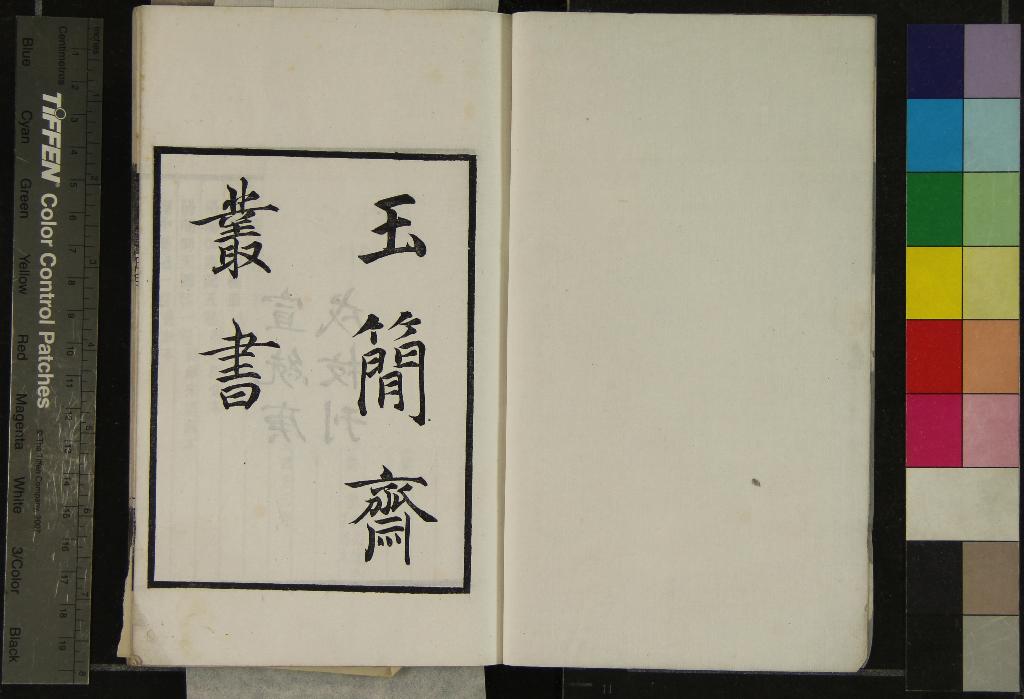 玉簡齋
叢書
宣統庚
戌校刊
inches
1 2 3 4 5 6 7 8
Centimetres
1 2 3 4 5 6 7 8 9 10 11 12 13 14 15 16 17 18 19
TIFFEN® Color Control Patches
©The Tiffen Company, 2007
Blue Cyan Green Yellow Red Magenta White 3/Color Black